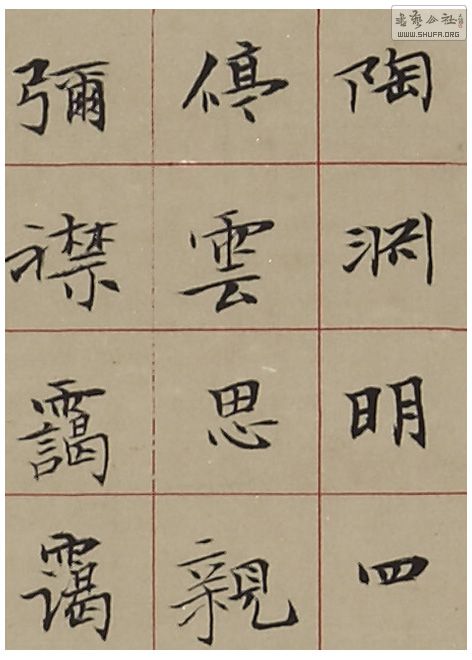 書藝公社
WWW.SHUFA.ORG
陶渊明四
停雲思親
彌襟靄靄